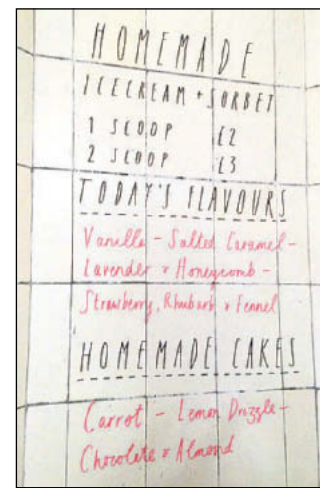 HOMEMADE
ICECREAM + SORBET
1 SCOOP £2
2 SCOOP £3
TODAY'S FLAVOURS
Vanilla - Salted Caramel -
Lavender & Honeycomb -
Strawberry, Rhubarb & Fennel
HOMEMADE CAKES
Carrot - Lemon Drizzle -
Chocolate & Almond